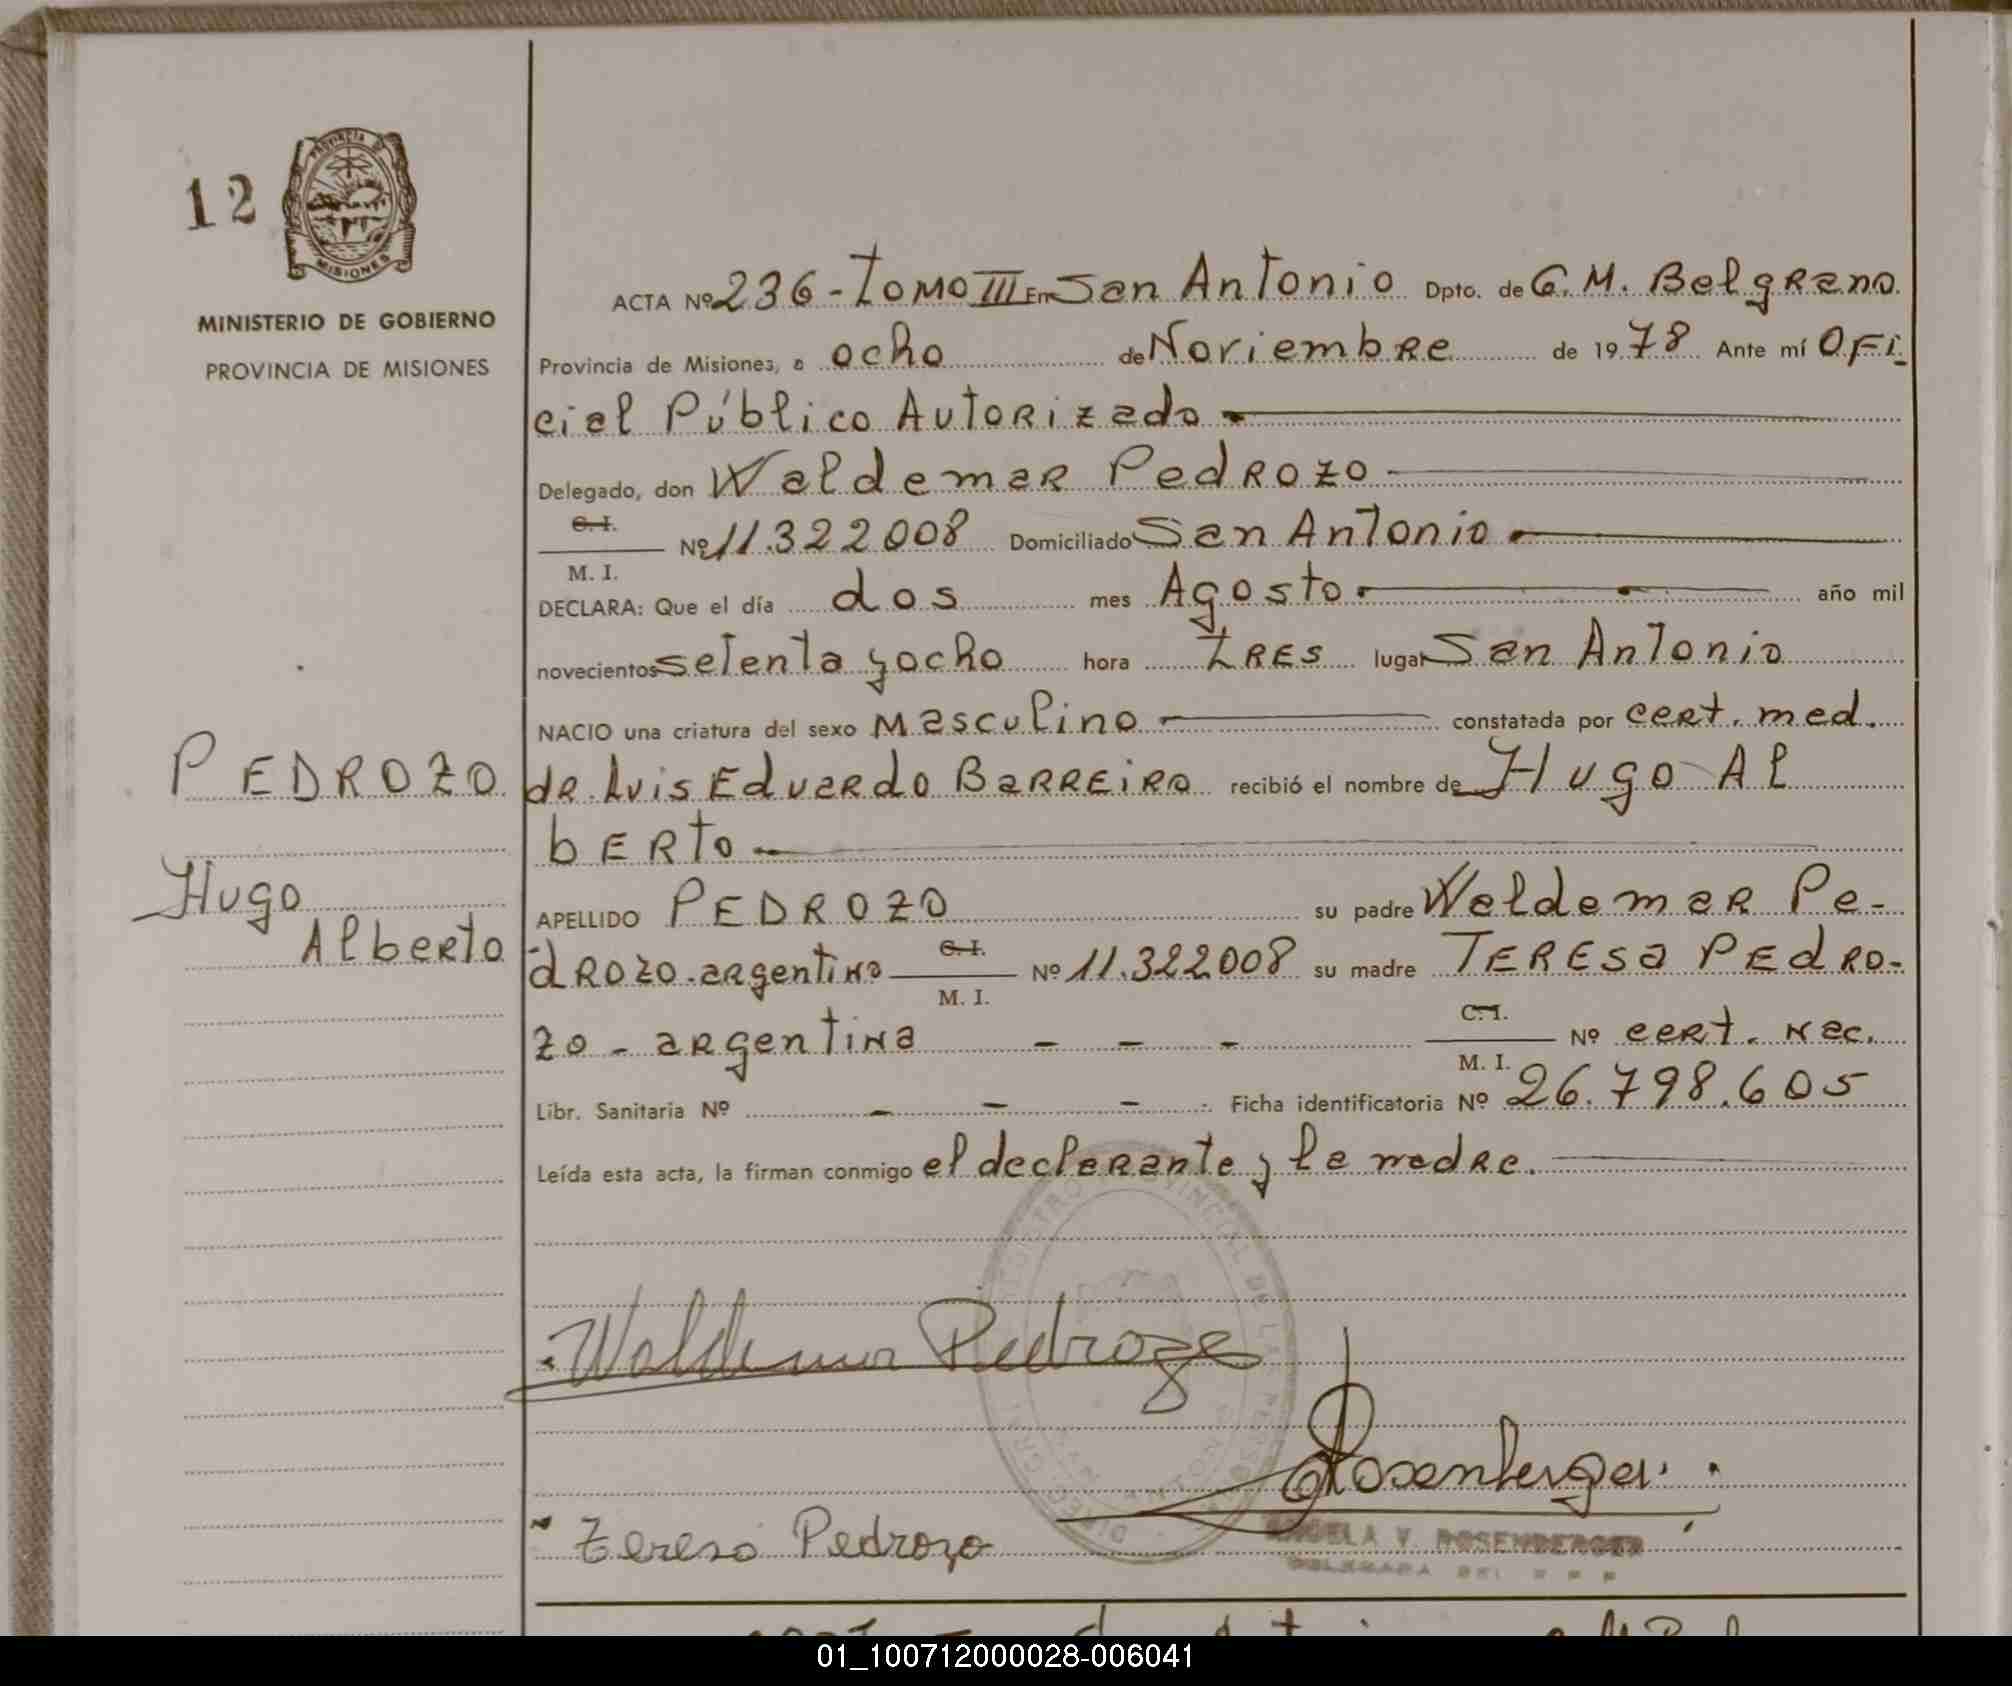 12
PROVINCIA DE
MISIONES
MINISTERIO DE GOBIERNO
PROVINCIA DE MISIONES
PEDROZO
Hugo
Alberto
ACTA Nº 236 - Tomo III En San Antonio Dpto. de G. M. Belgrano
Provincia de Misiones, a ocho de Noviembre de 1978 Ante mí Ofi-
cial Público Autorizado
Delegado, don Waldemar Pedrozo
C. I.
Nº 11.322008 Domiciliado San Antonio
M. I.
DECLARA: Que el día dos mes Agosto año mil
novecientos setenta y ocho hora tres lugar San Antonio
NACIO una criatura del sexo Masculino constatada por cert. med.
de Luis Eduardo Barreiro recibió el nombre de Hugo Al
berto
APELLIDO PEDROZO su padre Waldemar Pe-
drozo - argentino C. I. M. I. Nº 11.322008 su madre Teresa Pedro-
zo - argentina - - - C. I. M. I. Nº cert. nac.
Libr. Sanitaria Nº - - - Ficha identificatoria Nº 26.798.605
Leída esta acta, la firman conmigo el declarante y la madre.
Waldemar Pedrozo
Rosenberger
Teresa Pedrozo
ANGELA V. ROSENBERGER
01_100712000028-006041